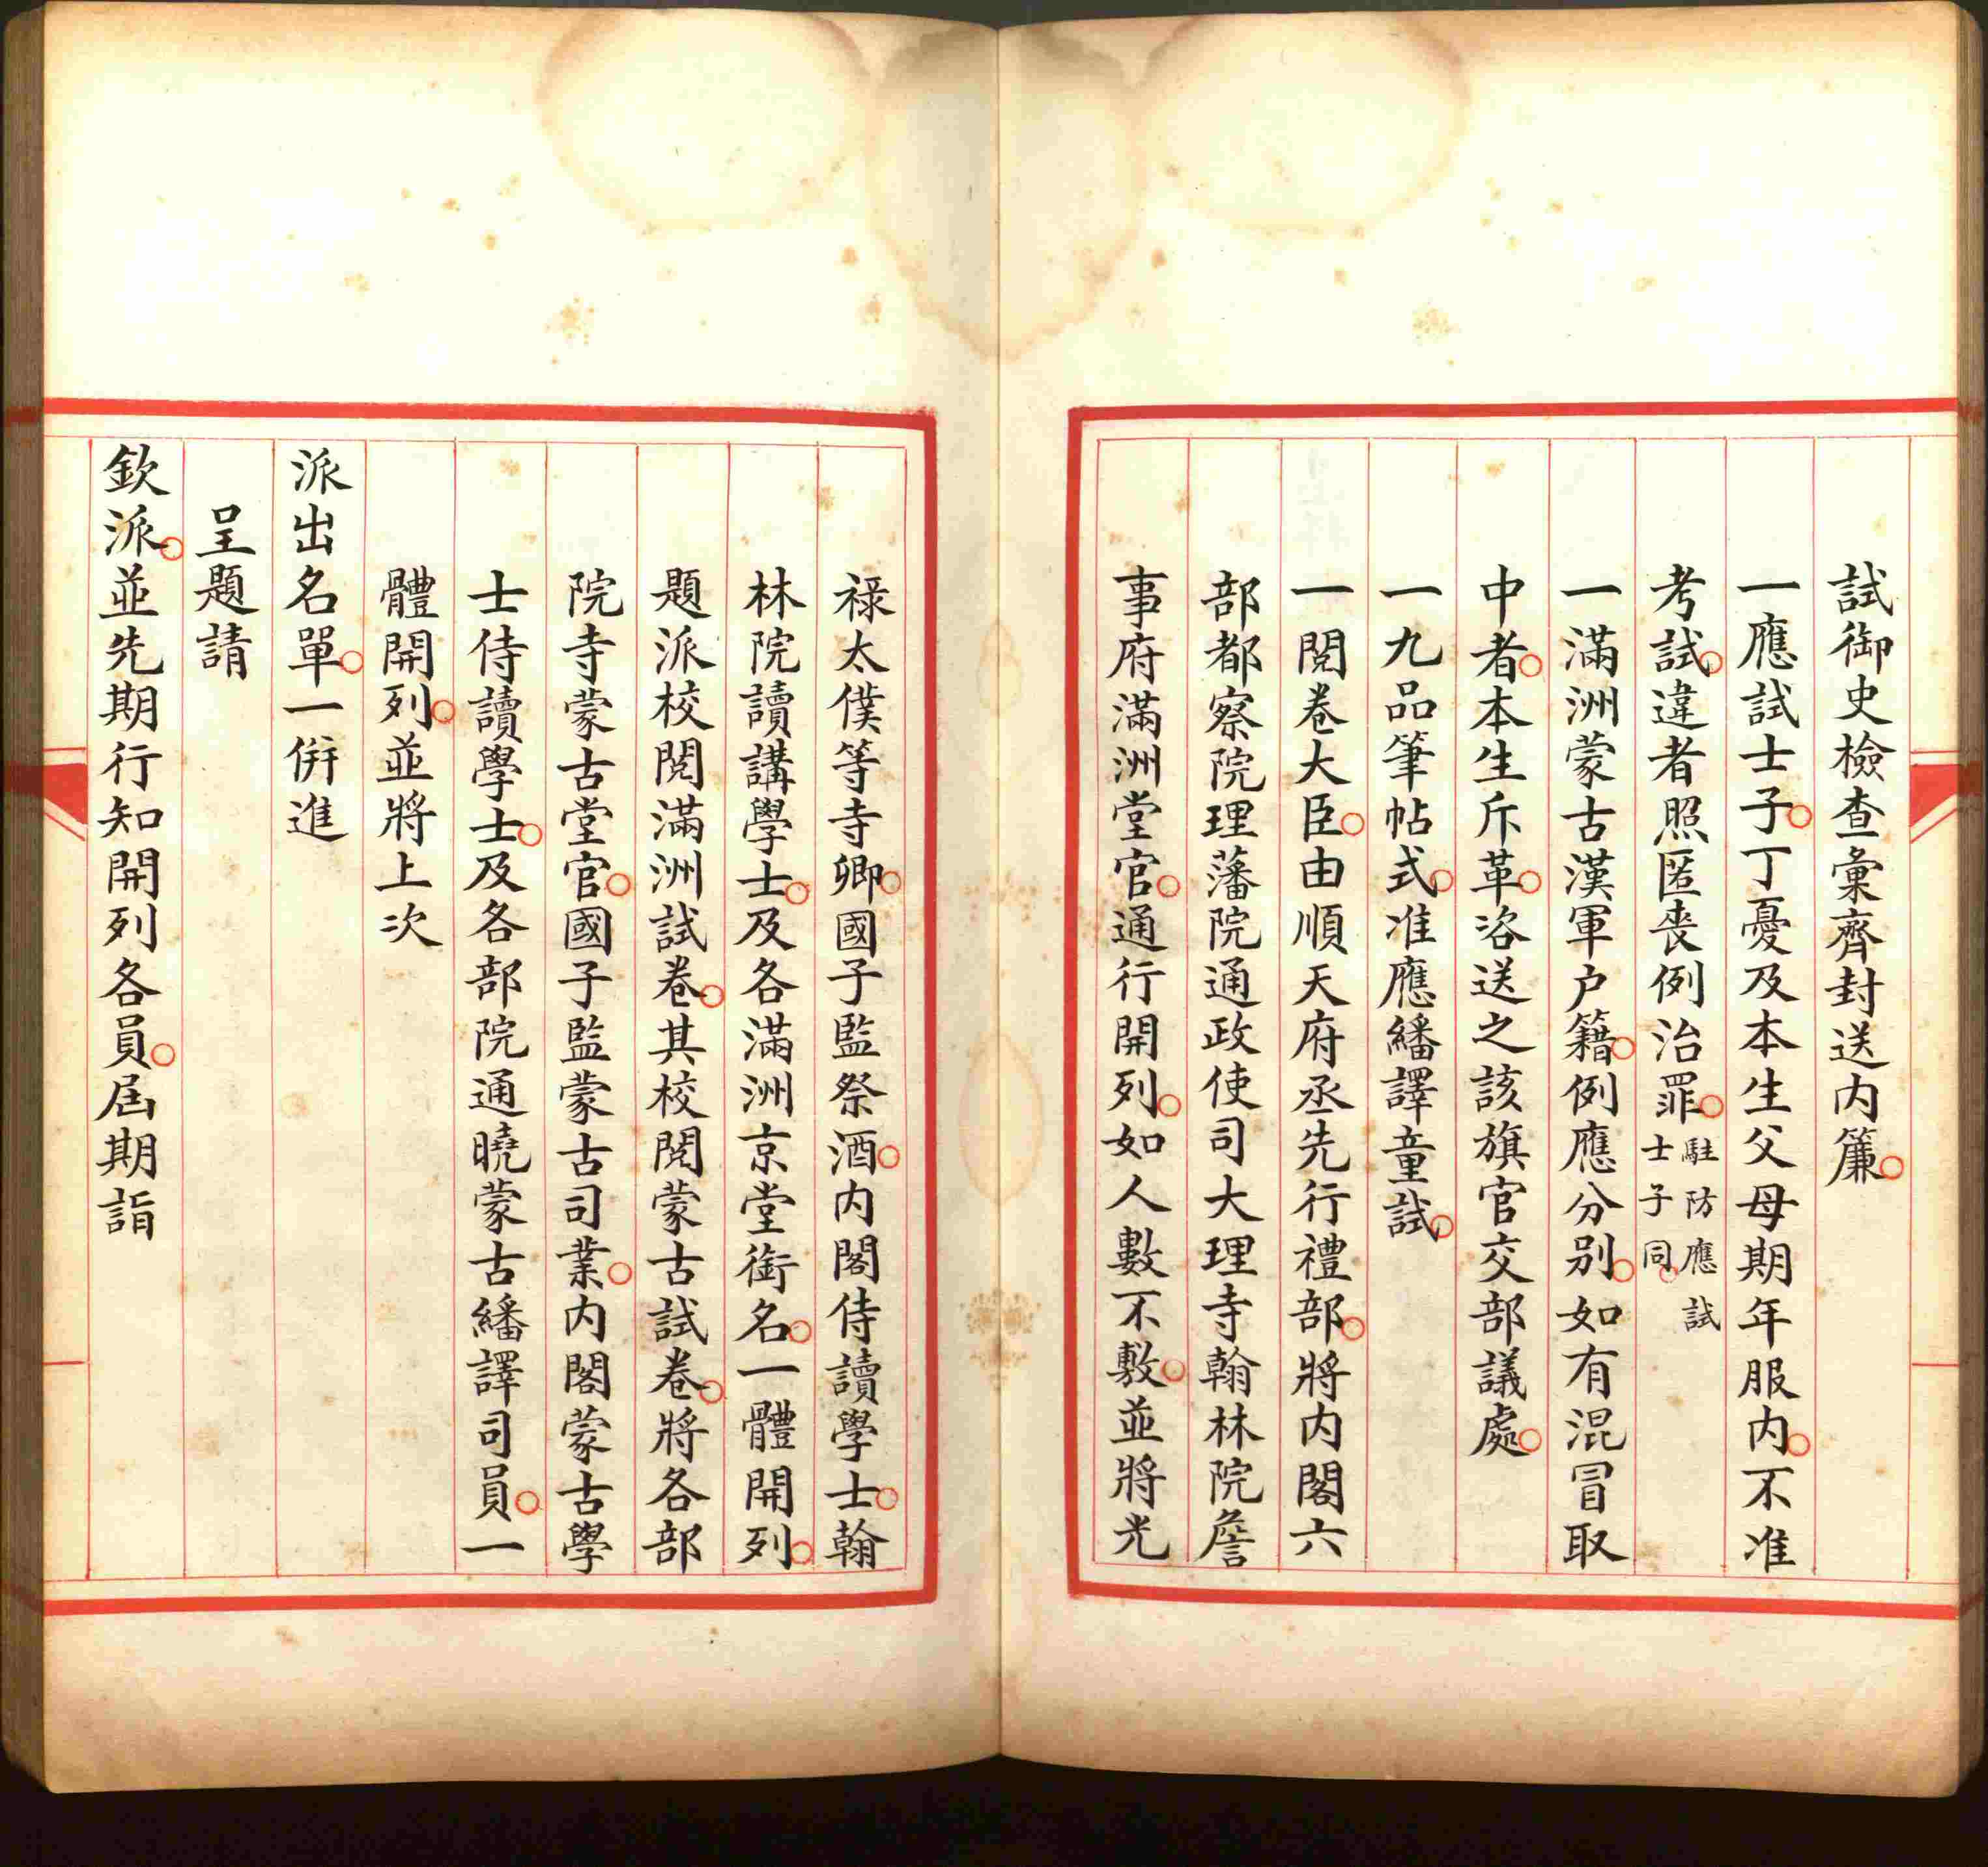 試御史檢查彙齊封送内簾○
一應試士子○丁憂及本生父母期年服内○不准
考試○違者照匿喪例治罪○駐防應試士子同○
一滿洲蒙古漢軍户籍○例應分别○如有混冒取
中者○本生斥革○咨送之該旗官交部議處○
一九品筆帖式○准應繙譯童試○
一閱卷大臣○由順天府丞先行禮部○將内閣六
部都察院理藩院通政使司大理寺翰林院詹
事府滿洲堂官○通行開列○如人數不敷○並將光
禄太僕等寺卿○國子監祭酒○内閣侍讀學士○翰
林院讀講學士○及各滿洲京堂銜名○一體開列○
題派校閱滿洲試卷○其校閱蒙古試卷○將各部
院寺蒙古堂官○國子監蒙古司業○内閣蒙古學
士侍讀學士○及各部院通曉蒙古繙譯司員○一
體開列○並將上次
派出名單○一併進
呈題請
欽派○並先期行知開列各員○屆期詣